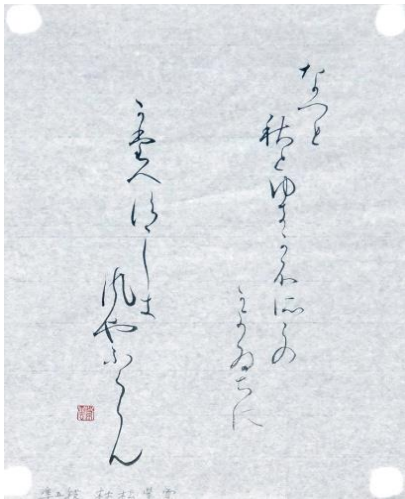 なつと
秋とゆきかふそらの
かよひちは
かたへすゝしき
風やふくらん